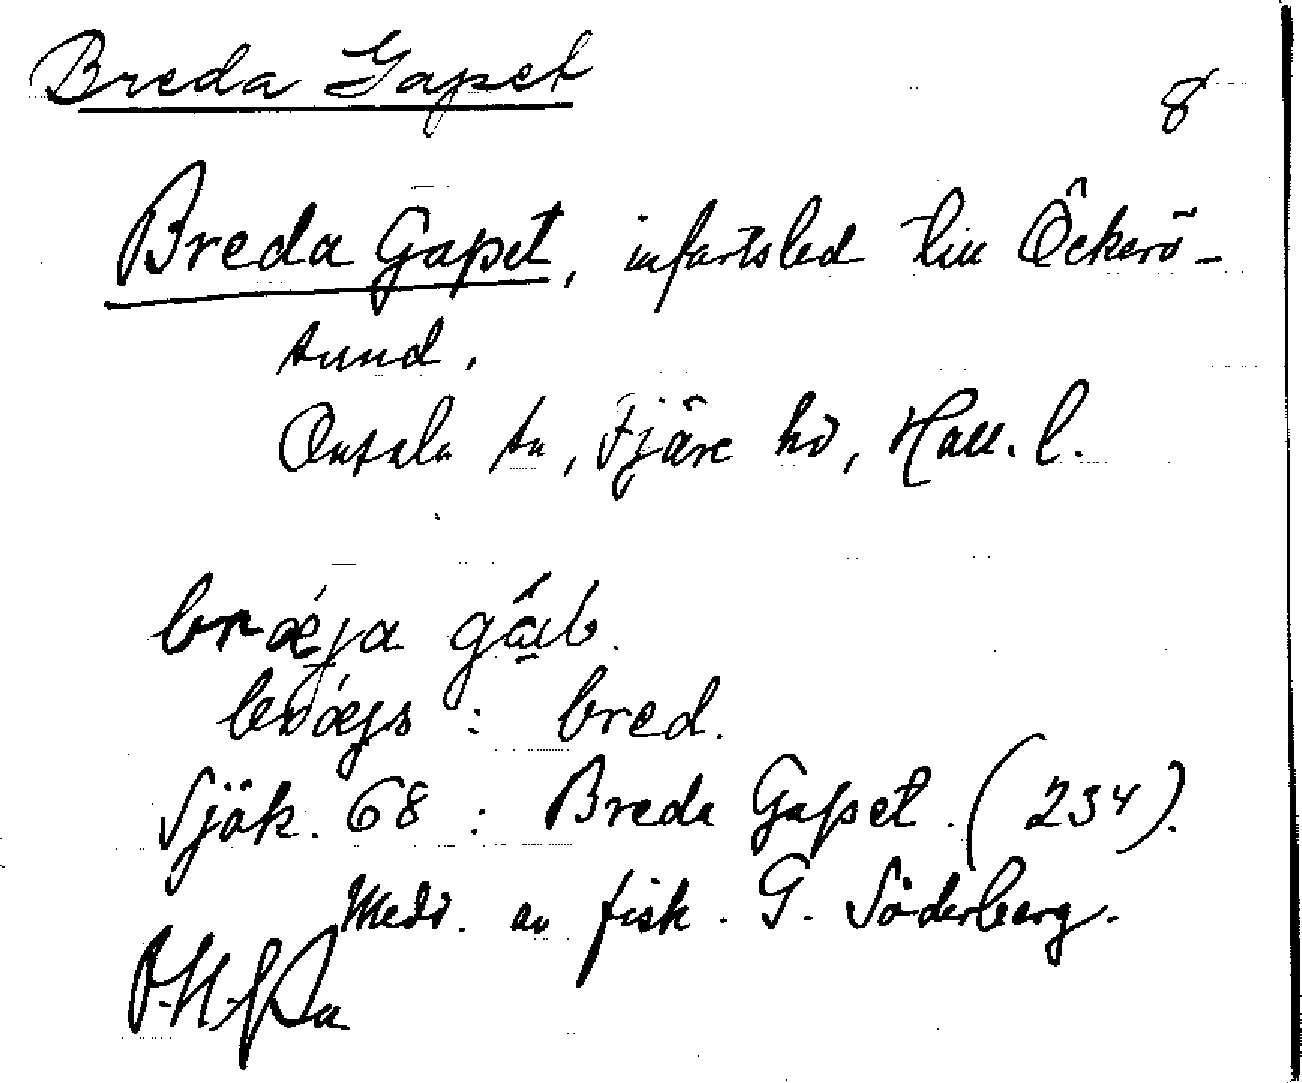 Breda Gapet
8
Breda Gapet, infartsled till Öckerö-
sund.
Onsala sn, Fjäre hd, Hall. l.
bræ̀ja gáb.
bræjs : bred.
Sjök. 68 : Breda Gapet. (234).
Medd. av fisk. G. Söderberg.